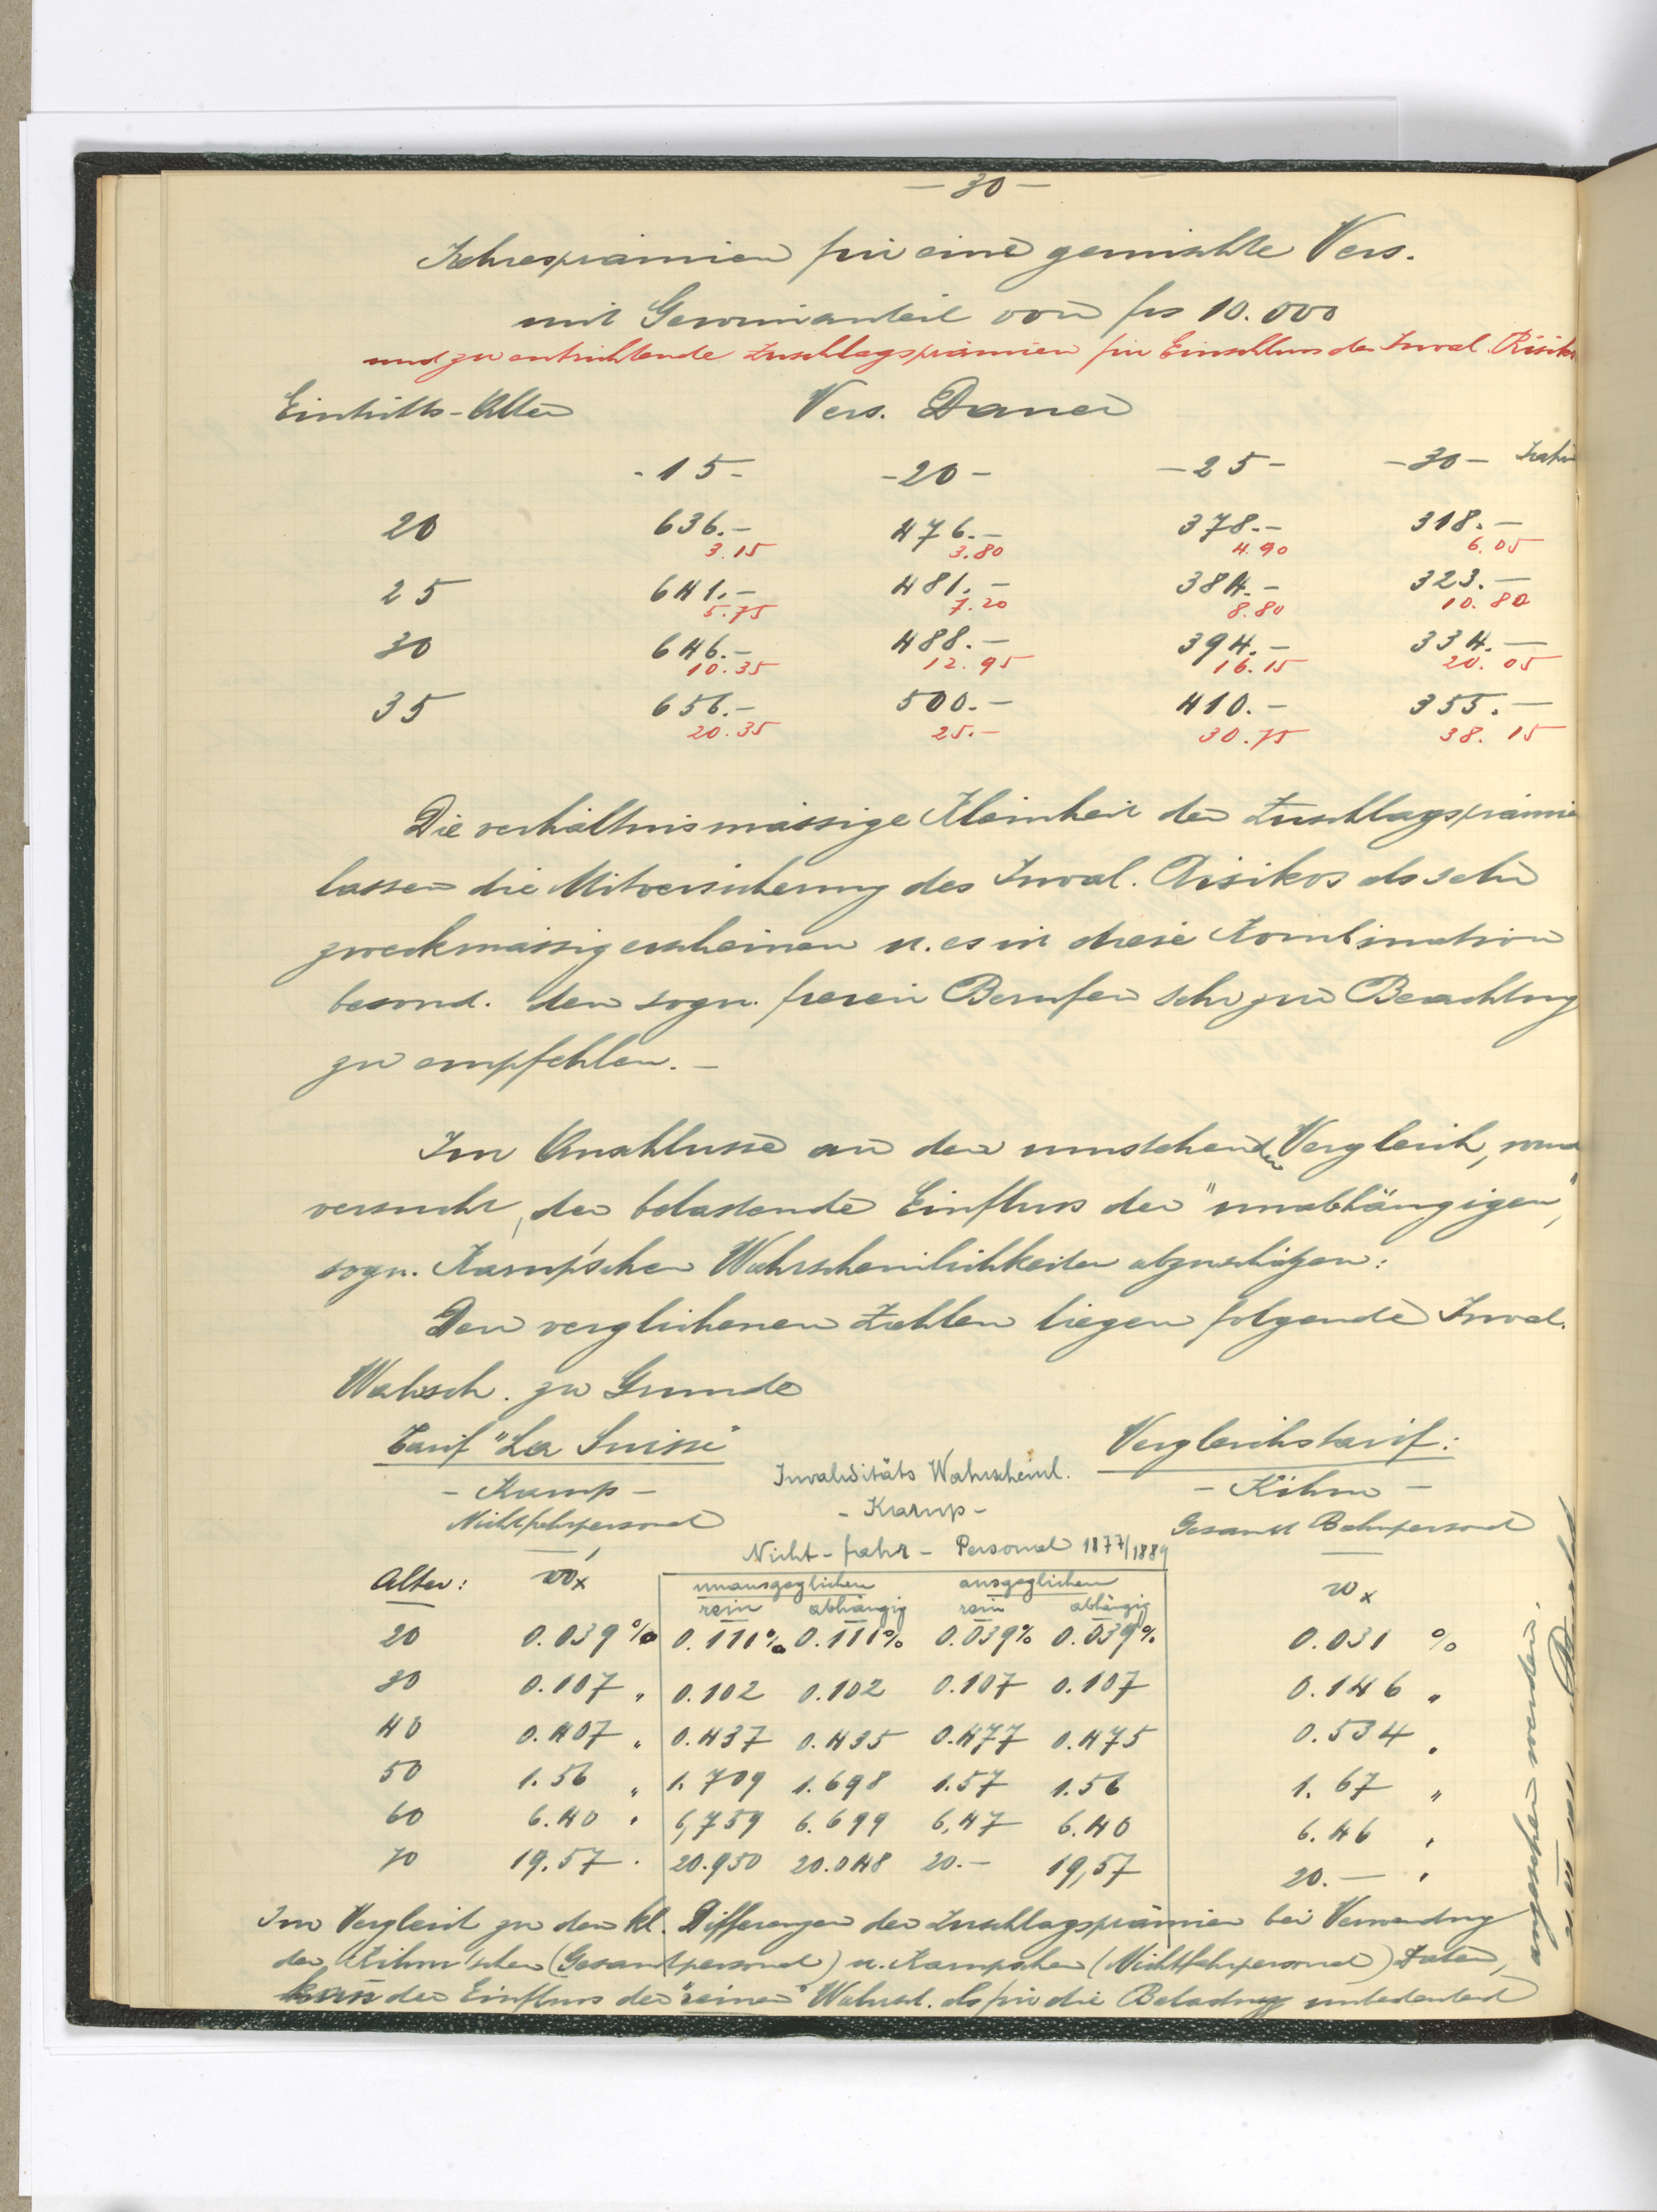 — 30 —
Jahresprämien für eine gemischte Vers.
mit Gewinnanteil von frs 10.000
und zu entrichtende Zuschlagsprämien für Einschluss des Inval. Risikos
Eintritts-Alter Vers. Dauer
- 15 - - 20 - - 25 - - 30 - Jahre
20 636.- 476.- 378.- 318.-
3.15 3.80 4.90 6.05
25 641.- 481.- 384.- 323.-
5.75 7.20 8.80 10.80
30 646.- 488.- 394.- 334.-
10.35 12.95 16.15 20.05
35 656.- 500.- 410.- 355.-
20.35 25.- 30.75 38.15
Die verhältnismässige Kleinheit der Zuschlagsprämie
lassen die Mitversicherung des Inval. Risikos als sehr
zweckmässig erscheinen u. es ist diese Kombination
besond. den sogn. freien Berufen sehr zur Beachtung
zu empfehlen. -
Im Anschlusse an den umstehenden Vergleich, wird
versucht, der belastende Einfluss der "unabhängigen",
sogn. Karup'schen Wahrscheinlichkeiten abzuschätzen:
Den verglichenen Zahlen liegen folgende Inval.
Wahsch. zu Grunde
Tarif "La Suisse" Vergleichstarif:
Invaliditäts Wahrscheinl.
- Karup - - Karup - - Kihm -
Nichtfahrpersonal Gesamt Bahnpersonal
Nicht-fahr-Personal 1877/1889
Alter: w'x unausgeglichen ausgeglichen wx
rein abhängig rein abhängig
20 0.039 % 0.111% 0.111% 0.039% 0.039% 0.031 %
30 0.107 " 0.102 0.102 0.107 0.107 0.146 "
40 0.407 " 0.437 0.435 0.477 0.475 0.534 "
50 1.56 " 1.709 1.698 1.57 1.56 1.67 "
60 6.40 " 6,759 6.699 6,47 6.40 6.46 "
70 19.57 " 20.950 20.048 20.- 19,57 20.- "
Im Vergleich zu den kl. Differenzen der Zuschlagsprämien bei Verwendung
der Kihm'schen (Gesamtpersonal) u. Karupschen (Nichtfahrpersonal) Daten,
kann der Einfluss der "reinen" Wahrsch. als für die Belastung unbedeutend
angesehen werden.